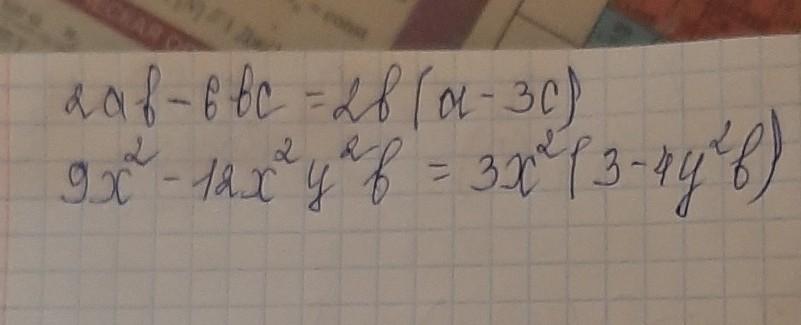 2ab - 6bc = 2b(a - 3c)
9x² - 12x²y²b = 3x²(3 - 4y²b)